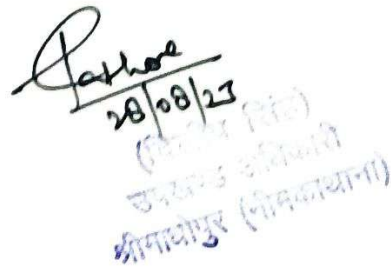 Rathore
28/08/23
सिंह)
उपखण्ड अधिकारी
श्रीमाधोपुर (नीमकाथाना)